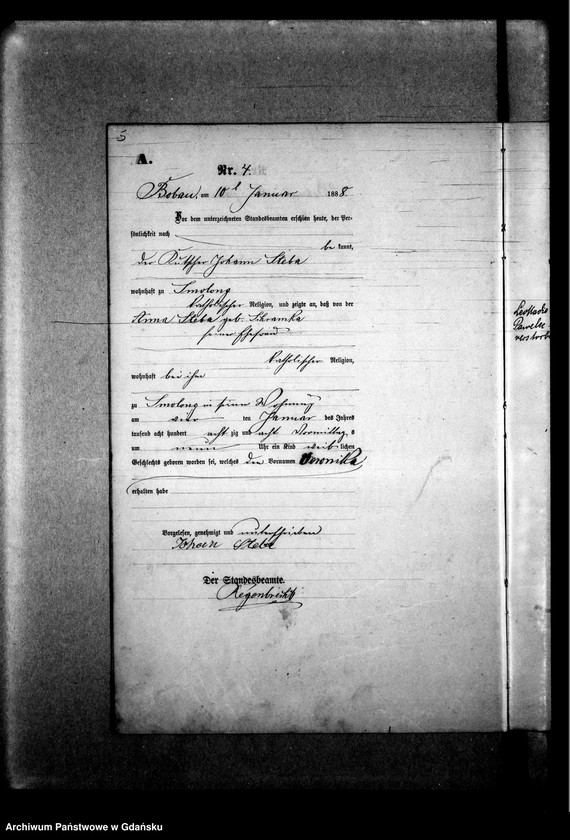 5
A.
Nr. 4.
Bobau, am 10 Januar 1888.
Vor dem unterzeichneten Standesbeamten erschien heute, der Per-
sönlichkeit nach
be kannt,
der Kutscher Johann Steba
wohnhaft zu Smolong
katholischer Religion, und zeigte an, daß von der
Anna Steba geb.
seiner Ehefrau
katholischer Religion,
wohnhaft bei ihm
zu Smolong in seiner Wohnung
am vier ten Januar des Jahres
tausend acht hundert acht zig und acht Vormittags
um neun Uhr ein Kind weiblichen
Geschlechts geboren worden sei, welches den Vornamen Veronika
erhalten habe
Vorgelesen, genehmigt und unterschrieben
Johann Steba
Der Standesbeamte.
Regenbrecht
Archiwum Państwowe w Gdańsku